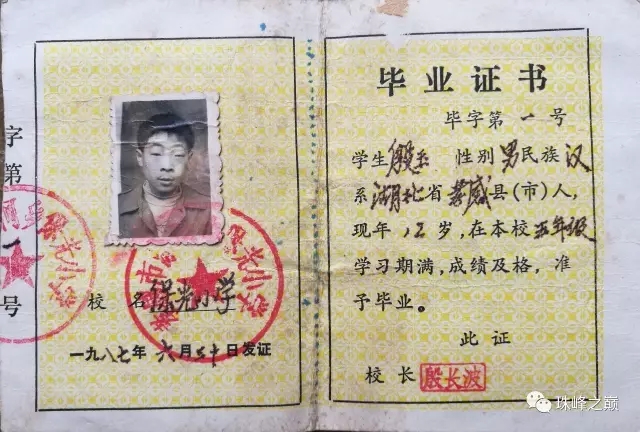 字第
一
号
校 名 保光小学
一九八七年六月三十日发证
毕业证书
毕字第 一 号
学生殷 性别男民族汉
系湖北省孝感县(市)人,
现年12岁,在本校五年级
学习期满,成绩及格,准
予毕业。
此证
校长 殷长波
保光小学
光小学
珠峰之巅